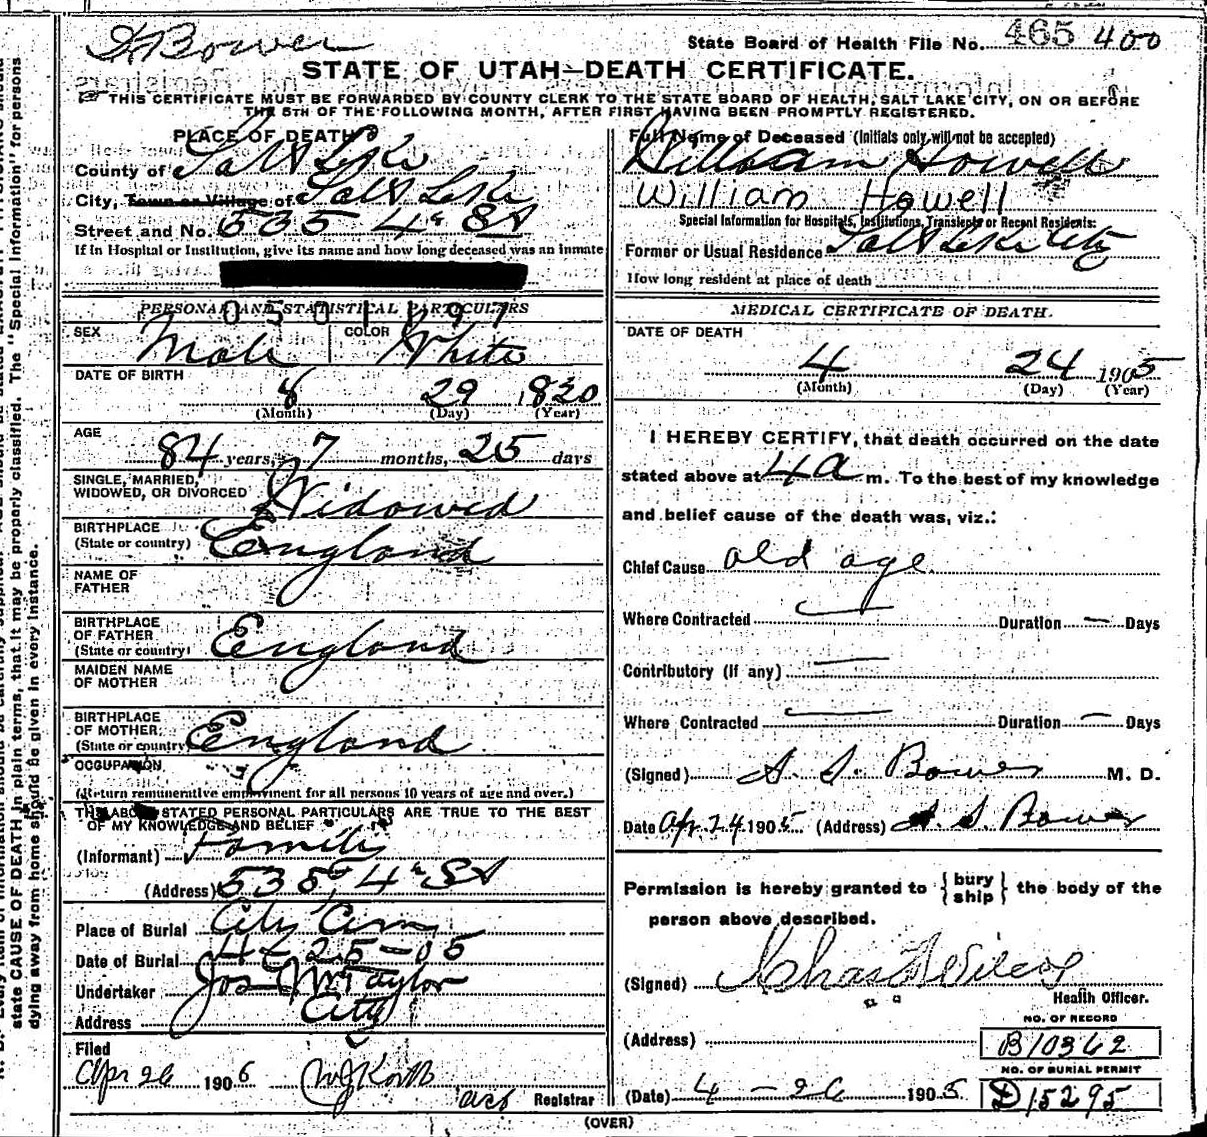 S Bower
State Board of Health File No. 465 400
STATE OF UTAH—DEATH CERTIFICATE.
THIS CERTIFICATE MUST BE FORWARDED BY COUNTY CLERK TO THE STATE BOARD OF HEALTH, SALT LAKE CITY, ON OR BEFORE
THE 5TH OF THE FOLLOWING MONTH, AFTER FIRST HAVING BEEN PROMPTLY REGISTERED.
PLACE OF DEATH
County of Salt Lake
City, Town or Village of Salt Lake
Street and No. 535 4th St
If in Hospital or Institution, give its name and how long deceased was an inmate
PERSONAL AND STATISTICAL PARTICULARS
0501197
SEX Male COLOR White
DATE OF BIRTH
8 29 1820
(Month) (Day) (Year)
AGE
84 years, 7 months, 25 days
SINGLE, MARRIED,
WIDOWED, OR DIVORCED Widowed
BIRTHPLACE
(State or country) England
NAME OF
FATHER
BIRTHPLACE
OF FATHER
(State or country) England
MAIDEN NAME
OF MOTHER
BIRTHPLACE
OF MOTHER
(State or country) England
OCCUPATION
(Return remunerative employment for all persons 10 years of age and over.)
THE ABOVE STATED PERSONAL PARTICULARS ARE TRUE TO THE BEST
OF MY KNOWLEDGE AND BELIEF
(Informant) Family
(Address) 535, 4th St
Place of Burial City Cem
Date of Burial 4-25-05
Undertaker Jos Wm Taylor
Address City
Filed
Apr 26 1905
Registrar
Full Name of Deceased (Initials only will not be accepted)
William Howell
William Howell
Special Information for Hospitals, Institutions, Transients or Recent Residents:
Former or Usual Residence Salt Lake City
How long resident at place of death
MEDICAL CERTIFICATE OF DEATH.
DATE OF DEATH
4 24 1905
(Month) (Day) (Year)
I HEREBY CERTIFY, that death occurred on the date
stated above at 4 a m. To the best of my knowledge
and belief cause of the death was, viz.:
Chief Cause old age
Where Contracted — Duration — Days
Contributory (If any) —
Where Contracted — Duration — Days
(Signed) S. S. Bower M. D.
Date Apr. 24. 1905 (Address) S. S. Bower
Permission is hereby granted to { bury ship } the body of the
person above described.
(Signed) Chas F Wilcox
Health Officer.
NO. OF RECORD
(Address) B10362
NO. OF BURIAL PERMIT
(Date) 4 - 26 1905 D15295
(OVER)
state CAUSE OF DEATH in plain terms, that it may be properly classified. The "Special Information" for persons
dying away from home should be given in every instance.